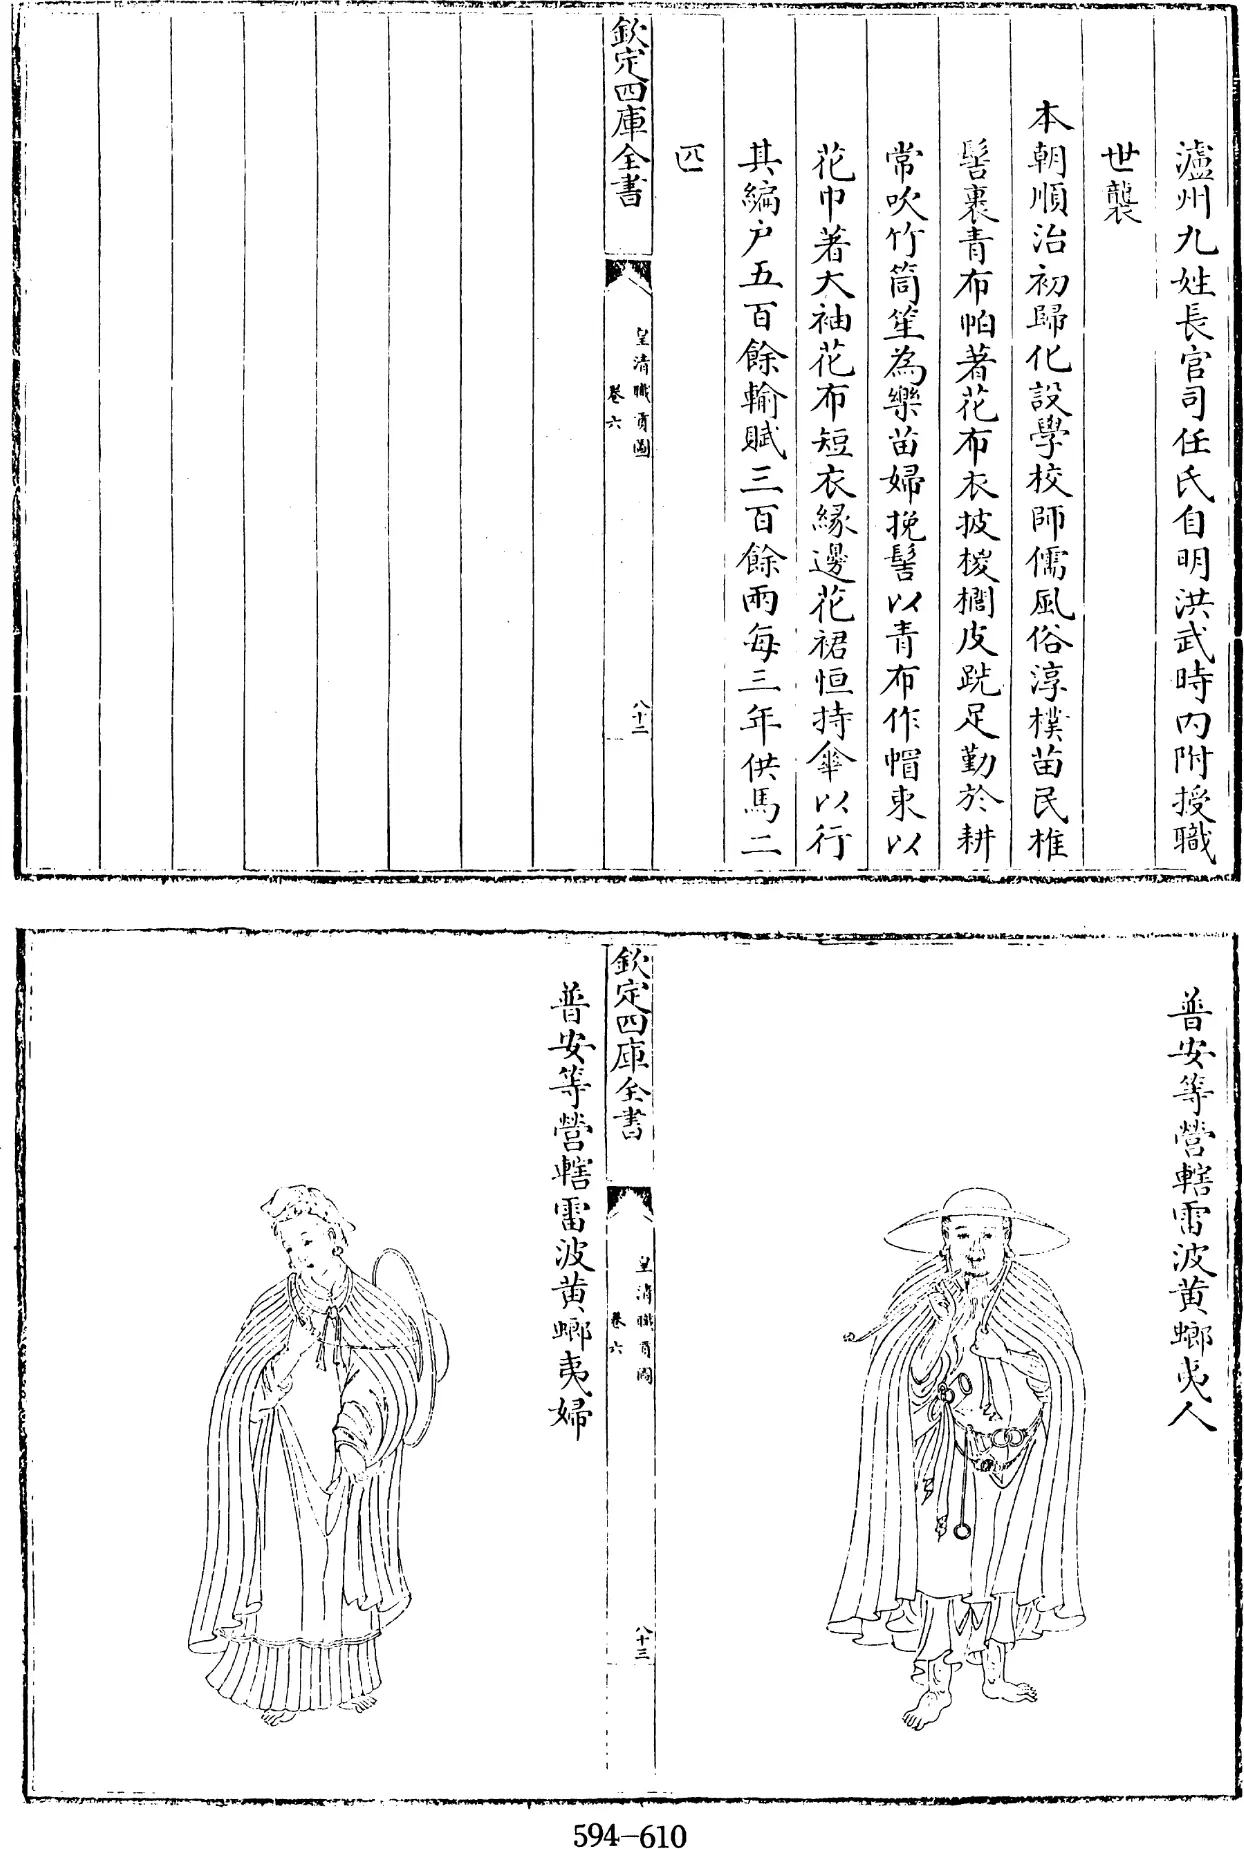 瀘州九姓長官司任氏自明洪武時内附授職
世襲
本朝順治初歸化設學校師儒風俗淳樸苗民椎
髻裹青布帕著花布衣披椶櫚皮跣足勤於耕
常吹竹筒笙為樂苗婦挽髻以青布作帽束以
花巾著大袖花布短衣緣邊花裙恒持傘以行
其編户五百餘輸賦三百餘兩每三年供馬二
匹
欽定四庫全書
皇清職貢圖
卷六
八十二
普安等營轄雷波黄螂夷人
欽定四庫全書
皇清職貢圖
卷六
八十三
普安等營轄雷波黄螂夷婦
594-610